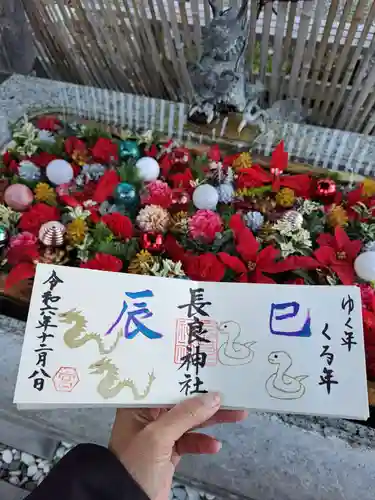 ゆく年
くる年
巳
長良神社
辰
令和六年十二月八日